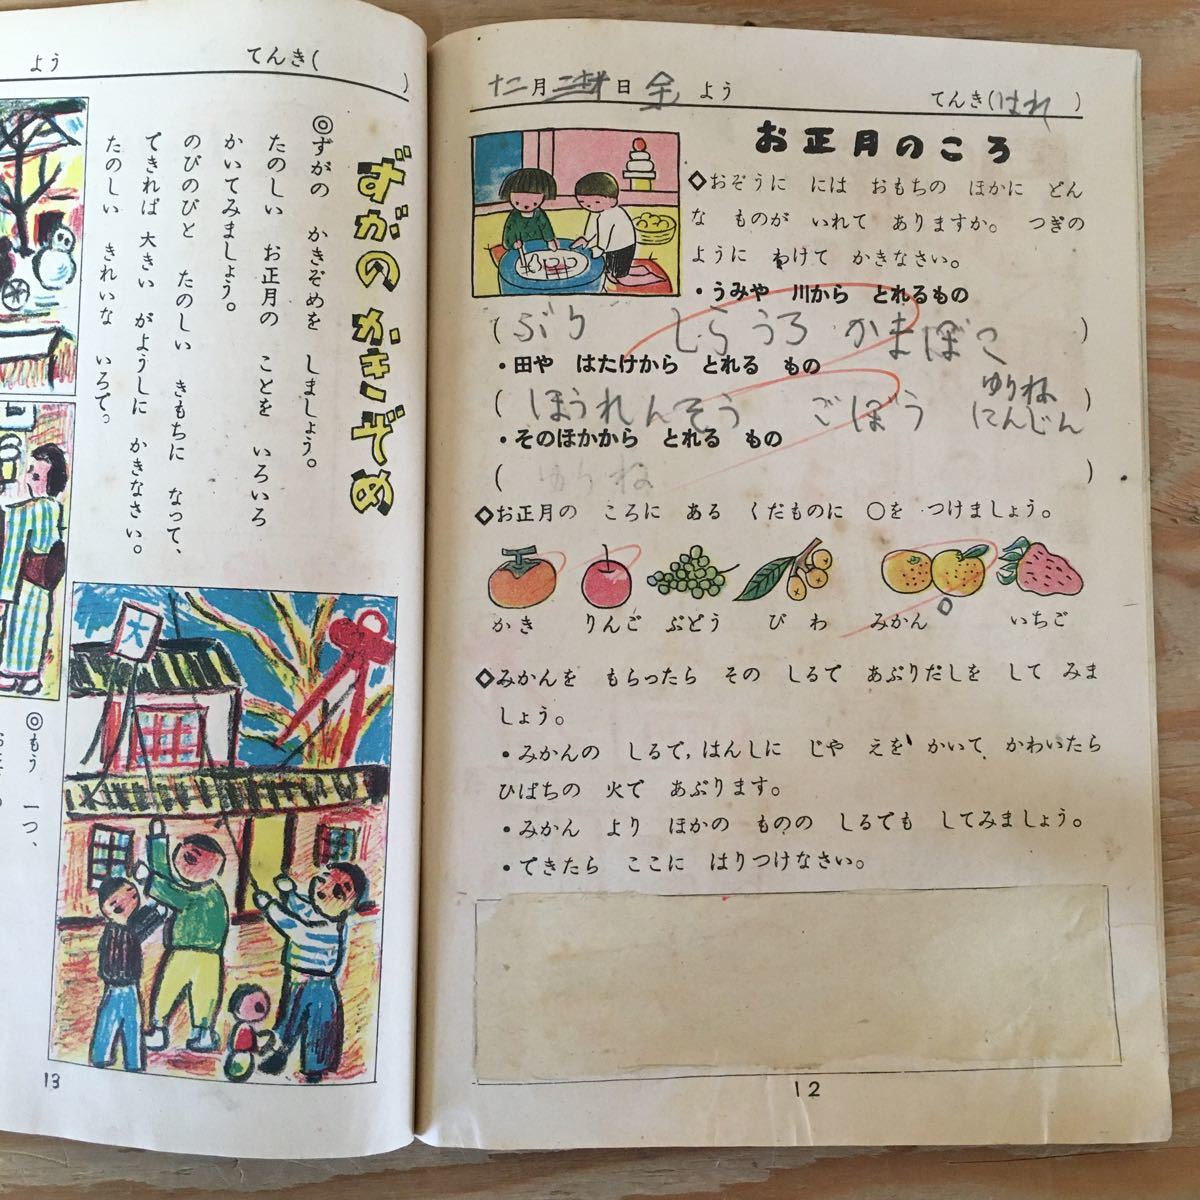 十二月 日 金 よう
てんき(はれ)
お正月のころ
◇おぞうに には おもちの ほかに どん
な ものが いれて ありますか。 つぎの
ように わけて かきなさい。
・うみや 川から とれるもの
(ぶり しらうろ かまぼこ)
・田や はたけから とれる もの
ゆりね
(ほうれんそう ごぼう にんじん)
・そのほかから とれる もの
(ゆりね)
◇お正月の ころに ある くだものに ○を つけましょう。
かき りんご ぶどう びわ みかん いちご
◇みかんを もらったら その しるで あぶりだしを して みま
しょう。
・みかんの しるで,はんしに じや えを かいて かわいたら
ひばちの 火で あぶります。
・みかん より ほかの ものの しるでも してみましょう。
・できたら ここに はりつけなさい。
12
よう てんき( )
ずがの かきぞめ
◎ずがの かきぞめを しましょう。
たのしい お正月の ことを いろいろ
かいてみましょう。
のびのびと たのしい きもちに なって、
できれば 大きい がようしに かきなさい。
たのしい きれいな いろで。
大
◎もう 一つ、
13